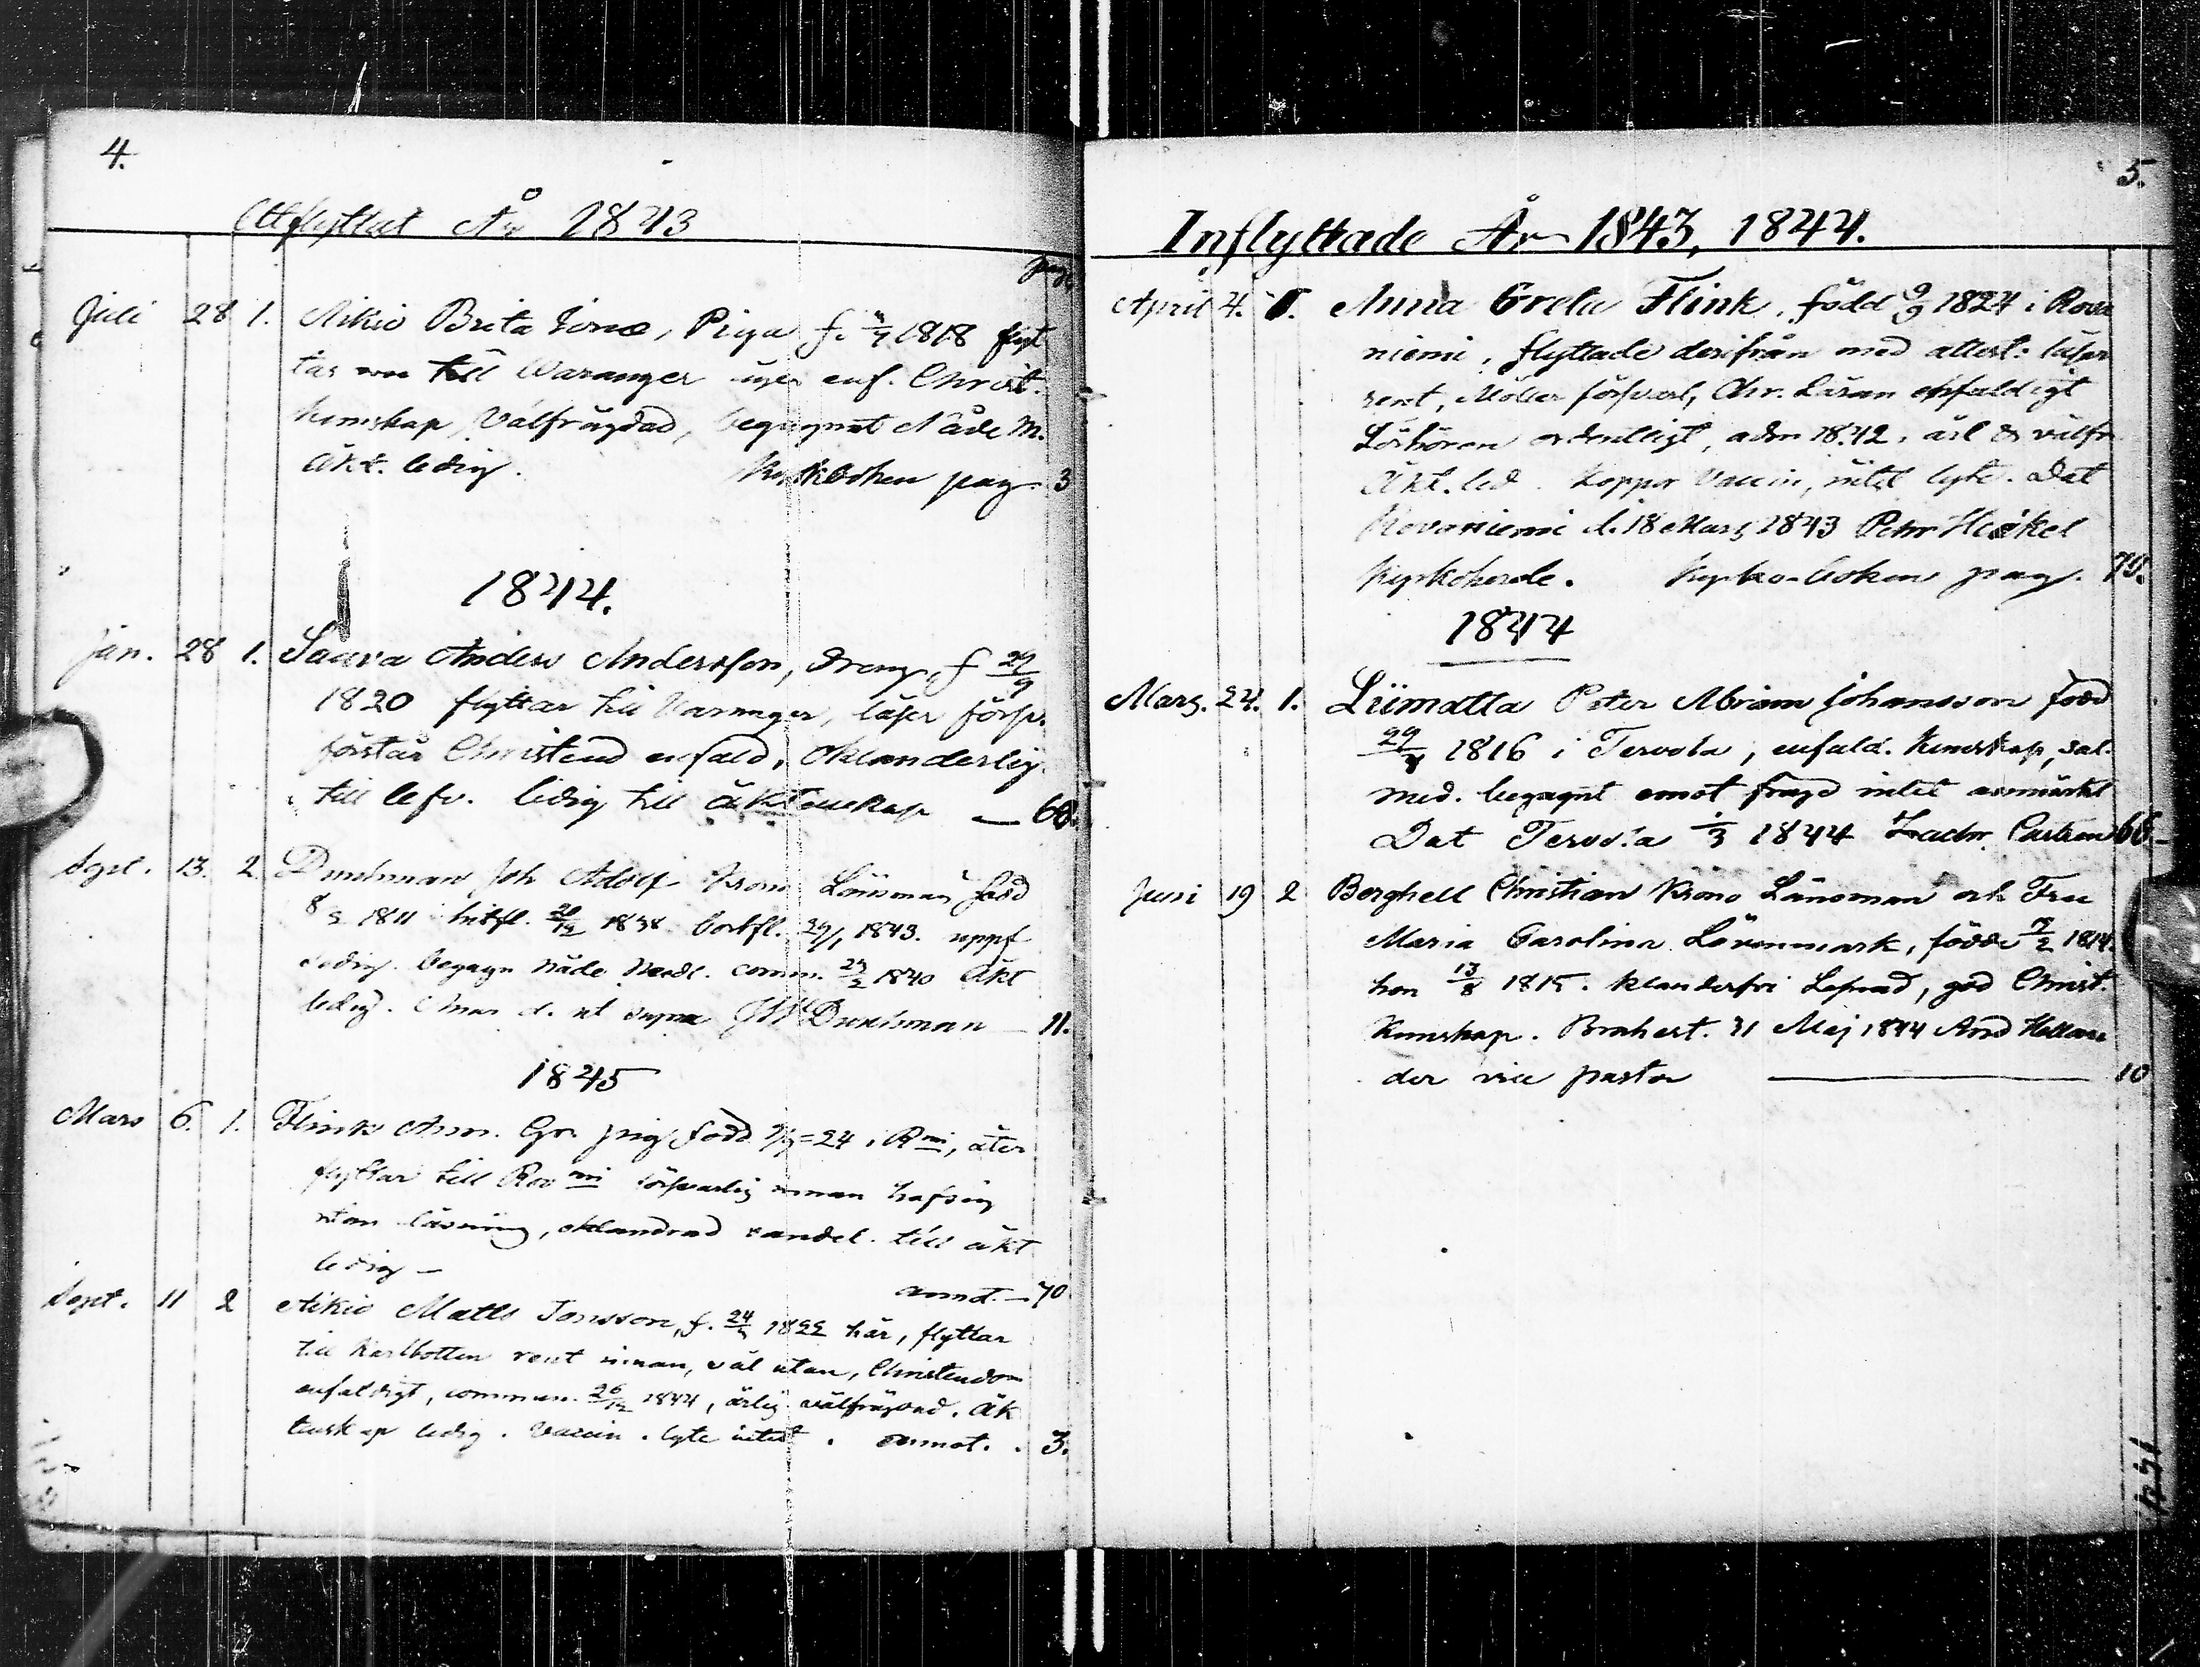 4.
Utflyttat År 1843
pag.
Juli 28 1. Aikio Brita, Piga f. 1818 flyt
tar till Waranger äger enf. Christ.
kunskap, Välfrägdad, begagnat Nåde M.
Äkt. ledig. Kyrkboken pag. 3
1844.
Jan. 28 1. Saava Anders Andersson, dreng, f 29/9
1820 flyttar till Waranger, läser förf.
förstår Christend enfald, Oklanderlig
till lefv. ledig till äktenskap — 60.
Sept. 13. 2. Durchman Joh Adolf Krono Länsman född
8/2 1811 hitfl. 1838 bortfl. 29/1 1843. uppf
sedig. begagn Nåde comm. 1840 Äkt
ledig. d. ut supra Durchman — 11.
1845
Mars 6. 1. Flink Ann. Gr. pig född 9/9 = 24 i Rmi, åter
flyttar till Rovmi förfvarlig innan hafvig
utan läsning, oklandrad vandel. till äkt
ledig — 70
Sept. 11 2 Aikio Matts Jonsson, f. 1822 här, flyttar
till Karlbotten rent innan, väl utan, Christendom
enfaldigt, commun. 26/12 1844, ärlig välfrägdad. Äk
tenskap ledig. Vaccin. lyte intet. 3.
5.
Inflyttade År 1843, 1844.
April 4. 1. Anna Greta Flink, född 9/9 1824 i Rova
niemi, flyttade derifrån med attest: läser
rent, Möller förfvarl, Chr. Läran enfaldigt
Läshören ordentligt, adm 1842, ärl & välfr
Äkt. led. Koppor Vaccin, intet lyte. Dat
Rovaniemi d. 18 Mars 1843 Petr Heikel
Kyrkoherde. Kyrko-boken pag. 70.
1844
Mars. 24. 1. Liimatta Peter Abram Johansson född
29 1816 i Tervola, enfald. Kunskap, sal.
med. begagnt emot frägd intet anmärkt
Dat Tervola 1/3 1844 Zachr. Castren 66-
Juni 19 2 Berghell Christian Krono Länsman och Fru
Maria Carolina Lövenmark, födde 1814.
hon 13/8 1815. klanderfri Lefnad, god Christ.
Kunskap. Brahest. 31 Maj 1844 And Hellan
der vice pastor — 10